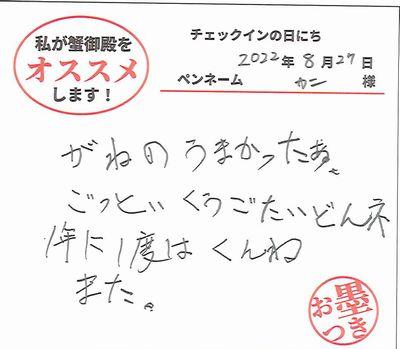 私が蟹御殿を
オススメ
します!
チェックインの日にち
2022年 8月27日
ペンネーム カン 様
がねのうまかったぁ。
ごっとい くうごたいどんネ
1年に1度は くんね
また。
お墨つき